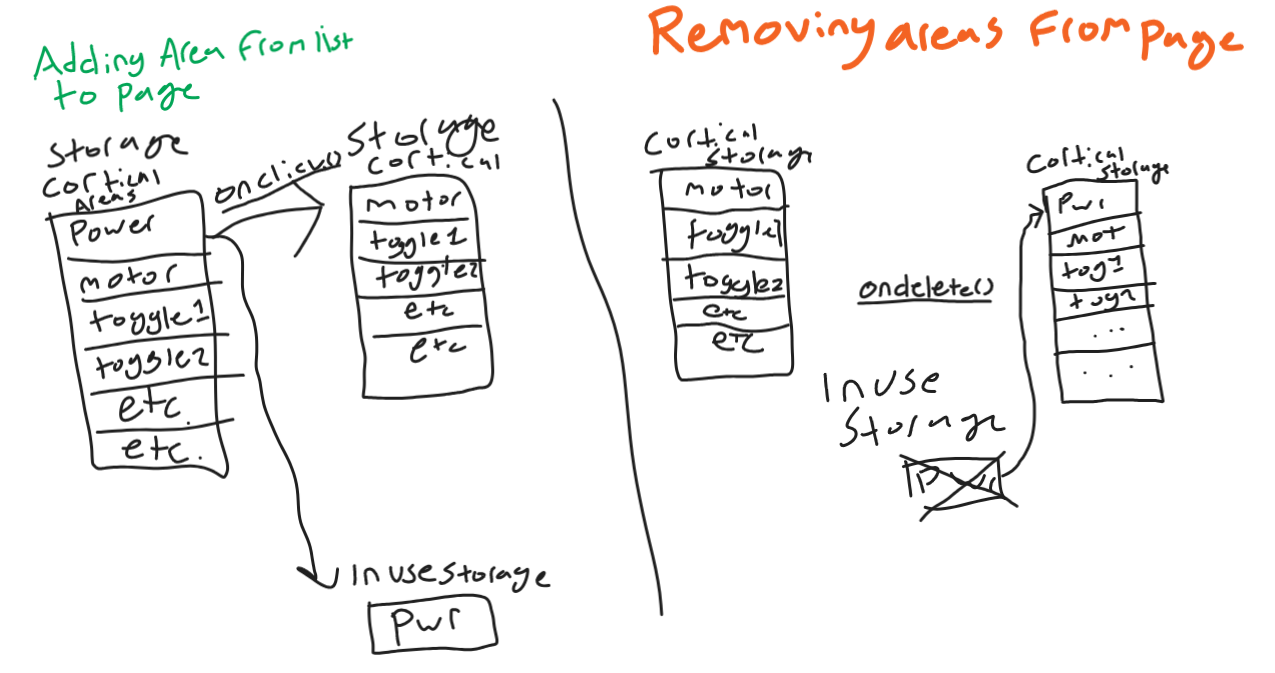 Adding Area From list
to page
Storage
Cortical
Areas
Power
motor
toggle1
toggle2
etc.
etc.
onclick()
Storage
Cortical
motor
toggle1
toggle2
etc
etc
In use storage
Pwr
Removing areas From page
Cortical
Storage
motor
toggle1
toggle2
etc
etc
ondelete()
In use
Storage
Pwr
Cortical
Storage
Pwr
mot
tog1
tog2
...
...